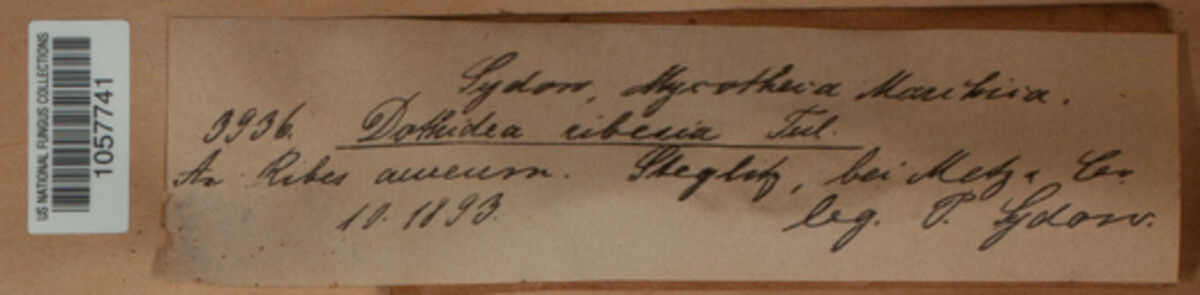 US NATIONAL FUNGUS COLLECTIONS
1057741
Sydow, Mycotheca Marchica.
3936. Dothidea ribesia Tul.
An Ribes aureum. Steglitz, bei Metz
10. 1893. leg. P. Sydow.